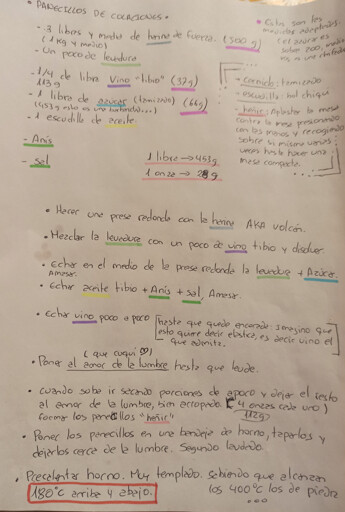 • PANECILLOS DE COLACIONES •
- 3 libras y media de harina de fuerza. (500g)
(1 kg y medio)
- Un poco de levadura
- 1/4 de libra vino "tibio" (37g)
113g
- 1 libra de azúcar (tamizado) (66g)
- 1 escudilla de aceite.
- Anís
- Sal
1 libra → 453g
1 onza → 28g
• Estas son las medidas adaptadas.
- cernido: tamizado
- escudilla: bol chiqui
- heñir: Aplastar la masa
contra la mesa presionando
con las manos y recogiendo
sobre si misma varias
veces hasta hacer una
masa compacta.
• Hacer una presa redonda con la harina AKA volcán.
• Mezclar la levadura con un poco de vino tibio y disolver.
• Echar en el medio de la presa redonda la levadura + Azúcar.
Amasar.
• Echar aceite tibio + Anís + sal. Amasar.
• Echar vino poco a poco [hasta que quede encerada: imagino que
esto quiere decir elástica, es decir vino el
que admita.
(que cuqui ♡)
• Poner al amor de la lumbre hasta que leude.
• Cuando suba ir sacando porciones de a poco y dejar el resto
al amor de la lumbre, bien arropado. (4 onzas cada uno)
Formar los panecillos "heñir" 112g
• Poner los panecillos en una bandeja de horno, taparlos y
dejarlos cerca de la lumbre. Segundo leudado.
• Precalentar horno. Muy templado. Sabiendo que alcanzan
180°C arriba y abajo. los 400°C los de piedra
...